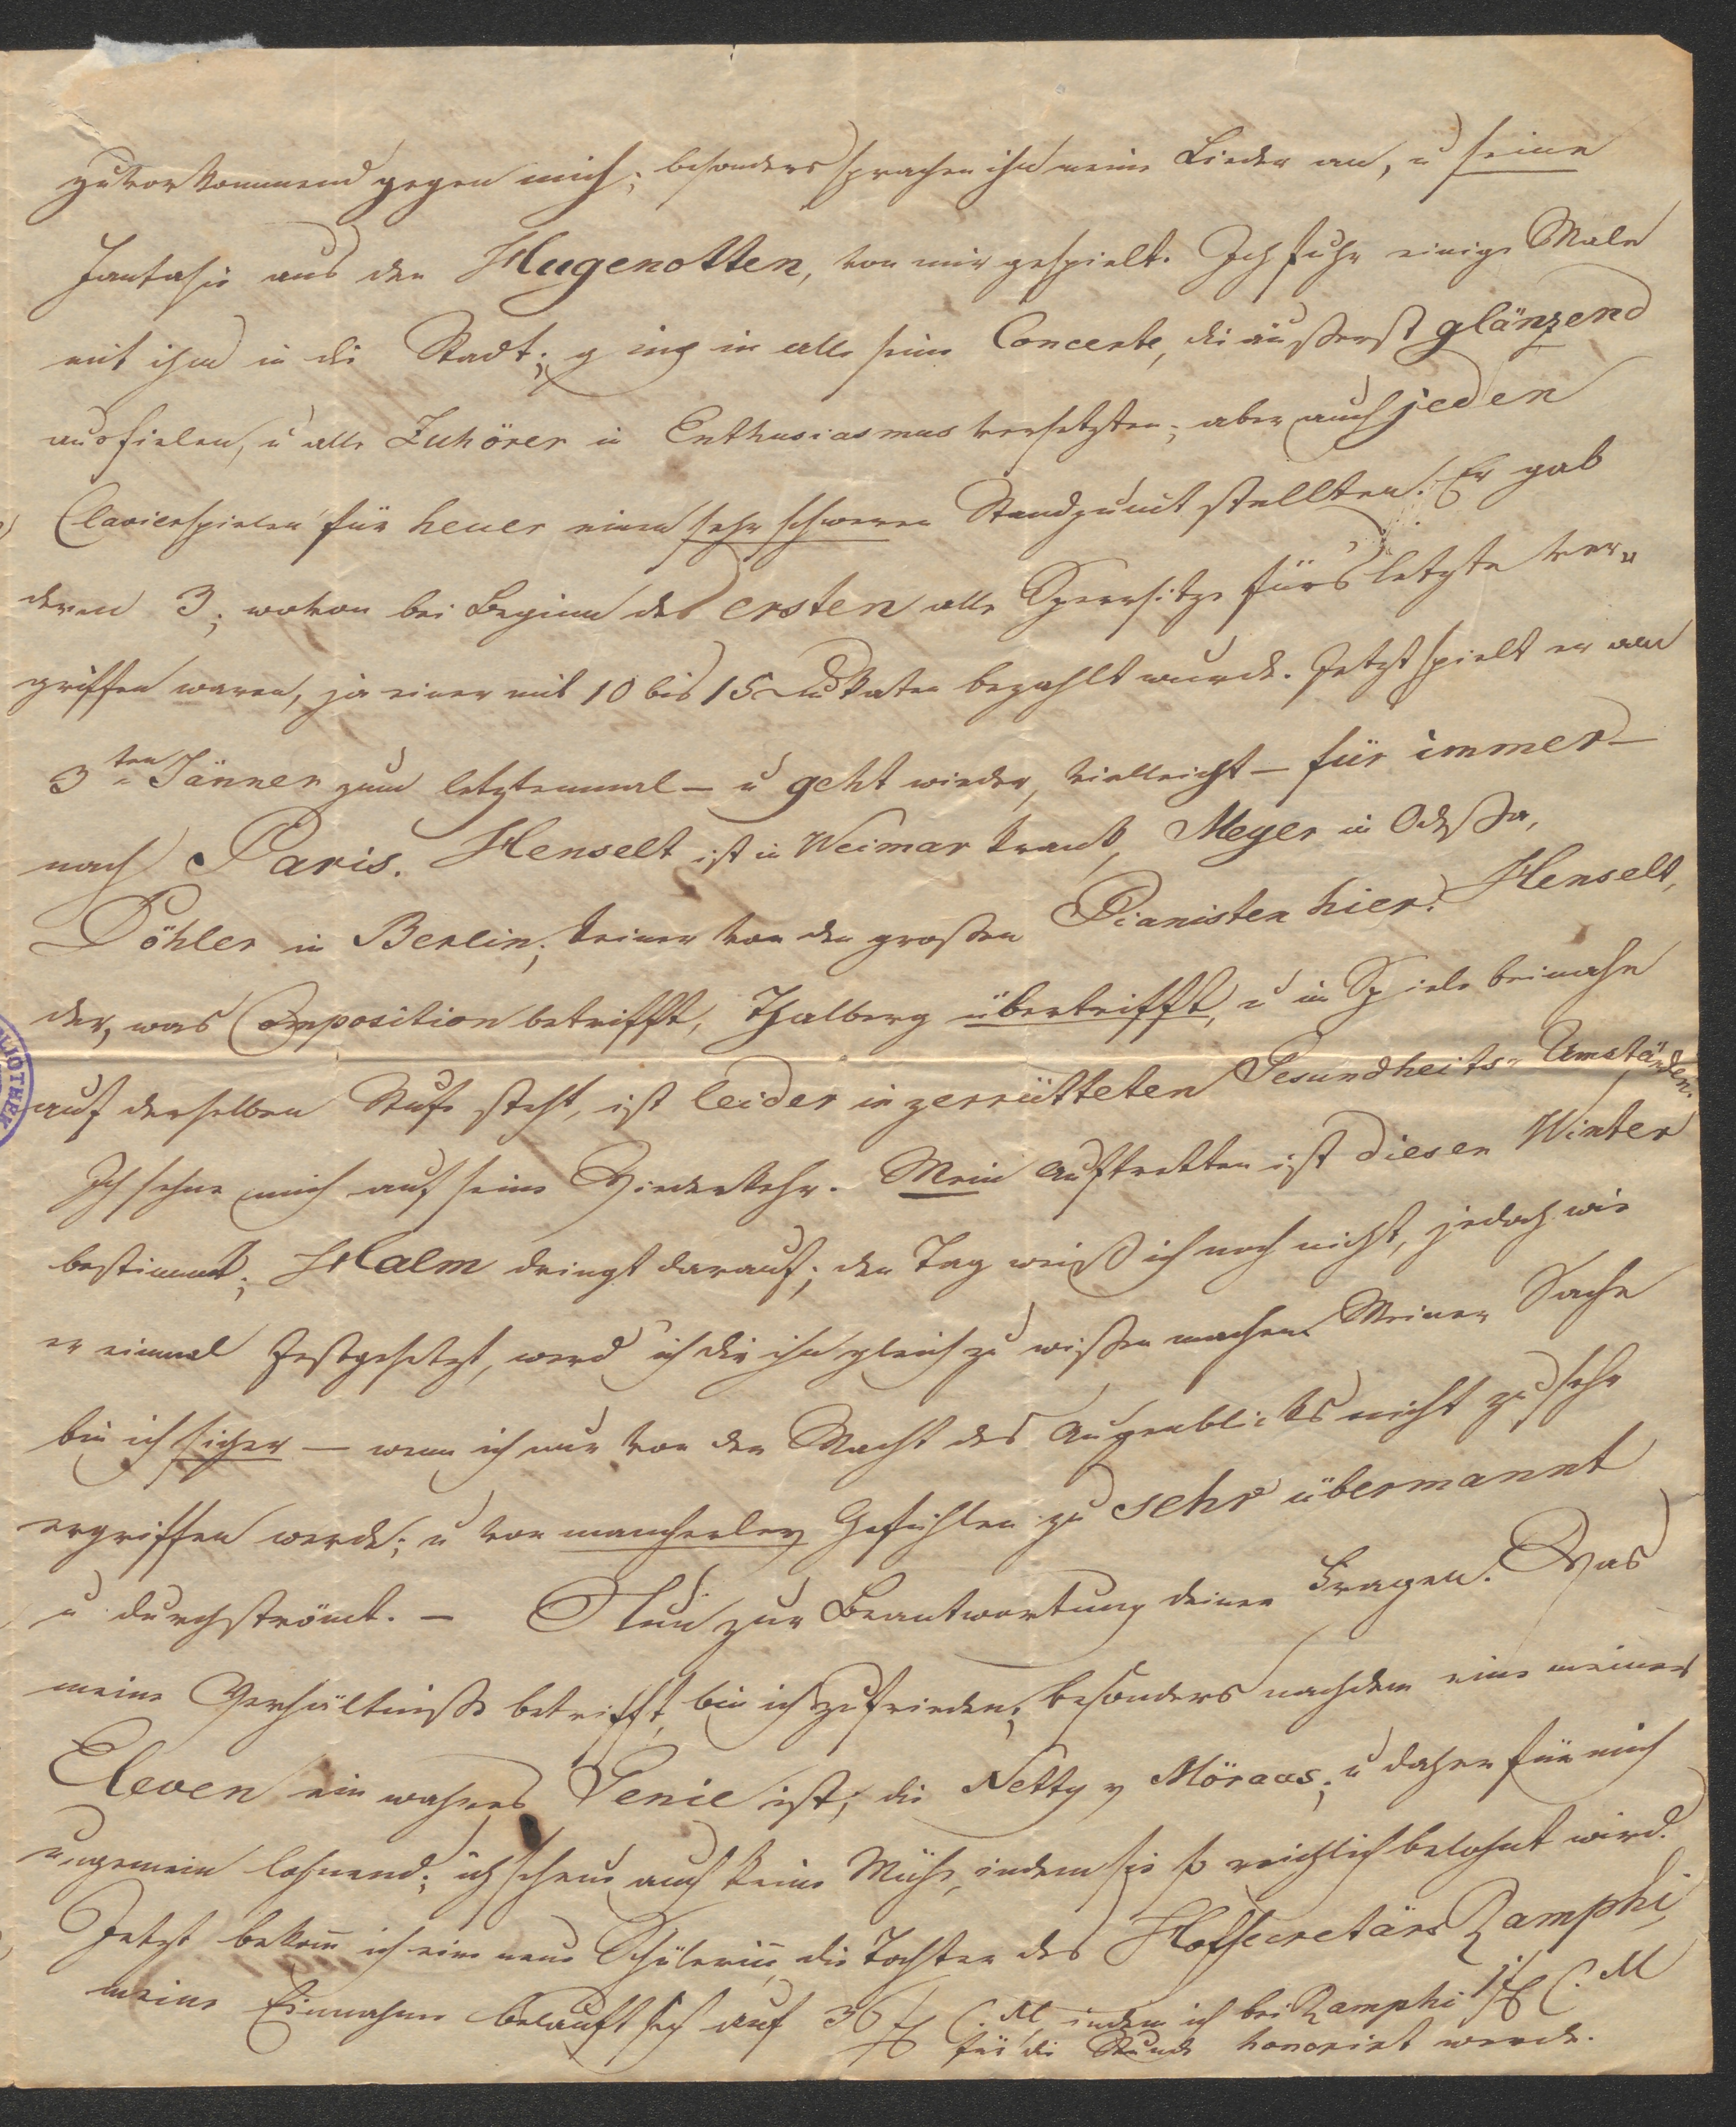 zuvorkommend gegen mich; besonders sprachen ihn meine Lieder an, u seine
Fantasie aus den Hugenotten, von mir gespielt. Ich fuhr einige Male
mit ihm in die Stadt; ging in alle seine Concerte, die äußerst glänzend
ausfielen, u alle Zuhörer in Enthusiasmus versetzten; aber auch jeden
Clavierspieler für heuer einen sehr schweren Standpunkt stellten. Er gab
deren 3; wovon bei Beginn des ersten alle Sperrsitze fürs letzte ver„
griffen waren, ja einer mit 10 bis 15 Dukaten bezahlt wurde. Jetzt spielt er am
3ten Jänner zum letztenmal – u geht wieder, vielleicht – für immer –
nach Paris. Henselt ist in Weimar krank, Meyer in Odeßa,
Döhler in Berlin; keiner von den großen Pianisten hier. Henselt,
der, was Composition betrifft, Thalberg übertrifft, u im Spiele beinahe
auf derselben Stufe steht, ist leider in zerrütteten Gesundheits-Umständen.
Ich sehne mich auf seine Wiederkehr. Mein Auftretten ist diesen Winter
bestimmt; Halm dringt darauf; den Tag weiß ich noch nicht, jedoch wie
er einmal festgesetzt, werd ich dir ihn gleich zu wißen machen. Meiner Sache
bin ich sicher – wenn ich nur von der Macht des Augenblicks nicht zu sehr
ergriffen werde; u von mancherley Gefühlen zu sehr übermannt
u durchströmt. – Nun zur Beantwortung deiner Fragen. Was
meine Verhältniße betrifft, bin ich zufrieden; besonders nachdem eine meiner
Eleven ein wahres Genie ist; die Netty v Möraus; u daher für mich
ungemein lohnend; ich scheue auch keine Mühe, indem sie so reichlich belohnt wird.
Jetzt bekom̄ ich eine neue Schülerin̄, die Tochter des Hofsecretärs Zamphi,
meine Einnahme belauft sich auf 36 f C. M, indem ich bei Zamphi 1 f C. M
für die Stunde honorirt werde.